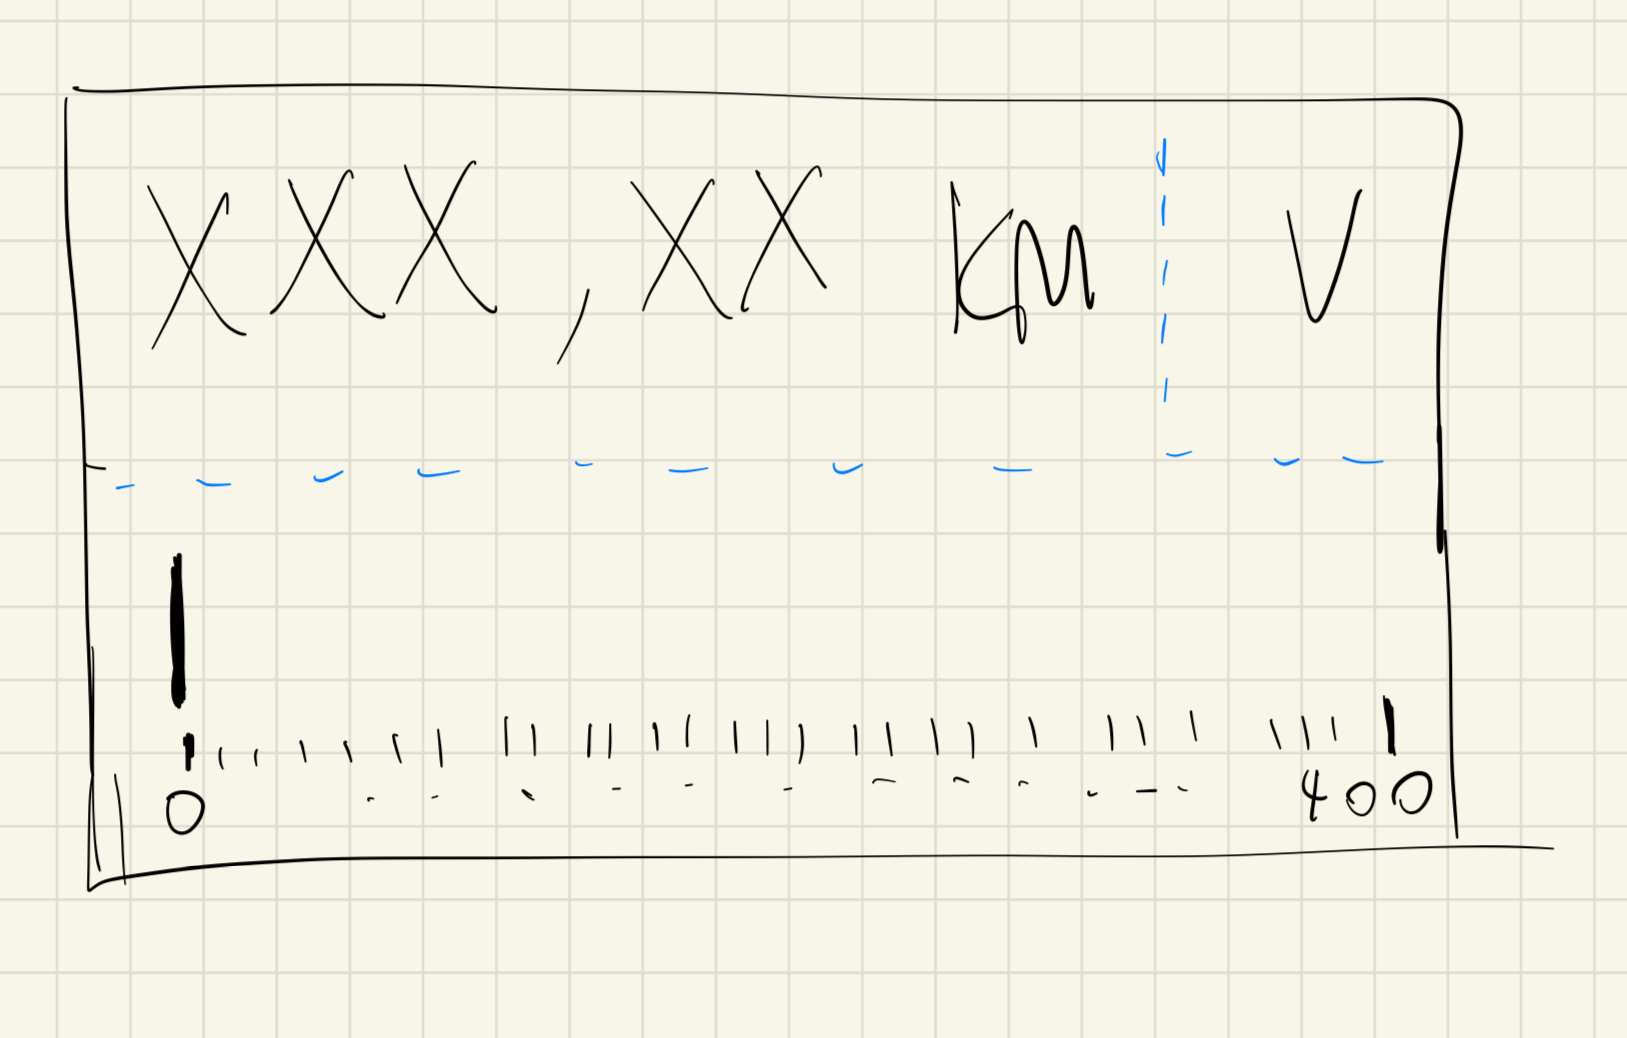 XXX,XX KM V
0 400